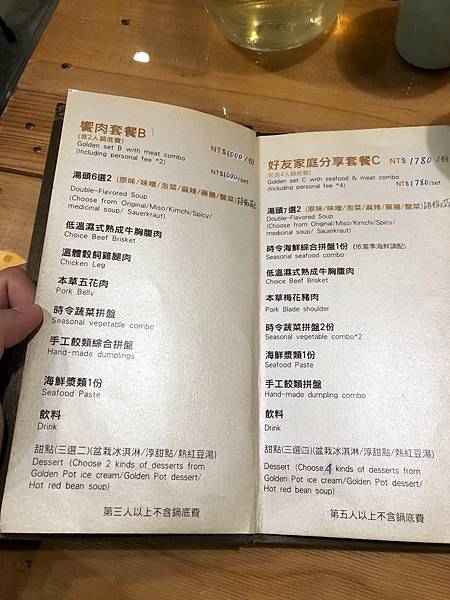 饗肉套餐B
(含2人鍋底費)
NT$1000/份
Golden set B with meat combo
(Including personal fee *2)
NT$1000/set
湯頭6選2 (原味/味噌/泡菜/麻辣/藥膳/酸菜)
Double-Flavored Soup
(Choose from Original/Miso/Kimchi/Spicy/
medicinal soup/ Sauerkraut)
低溫濕式熟成牛胸腹肉
Choice Beef Brisket
溫體穀飼雞腿肉
Chicken Leg
本草五花肉
Pork Belly
時令蔬菜拼盤
Seasonal vegetable combo
手工餃類綜合拼盤
Hand-made dumplings
海鮮漿類1份
Seafood Paste
飲料
Drink
甜點(三選二)(盆栽冰淇淋/淳甜點/熱紅豆湯)
Dessert (Choose 2 kinds of desserts from
Golden Pot ice cream/Golden Pot dessert/
Hot red bean soup)
第三人以上不含鍋底費
好友家庭分享套餐C
(包含4人鍋底費)
NT$1780/份
Golden set C with seafood & meat combo
(Including personal fee *4)
NT$1780/set
湯頭7選2 (原味/味噌/泡菜/麻辣/藥膳/酸菜)
Double-Flavored Soup
(Choose from Original/Miso/Kimchi/Spicy/
medicinal soup/ Sauerkraut)
時令海鮮綜合拼盤1份 (依當季海鮮調配)
Seasonal seafood combo
低溫濕式熟成牛胸腹肉
Choice Beef Brisket
本草梅花豬肉
Pork Blade shoulder
時令蔬菜拼盤2份
Seasonal vegetable combo*2
海鮮漿類1份
Seafood Paste
手工餃類拼盤
Hand-made dumpling combo
飲料
Drink
甜點(三選四)(盆栽冰淇淋/淳甜點/熱紅豆湯)
Dessert (Choose 4 kinds of desserts from
Golden Pot ice cream/Golden Pot dessert/
Hot red bean soup)
第五人以上不含鍋底費